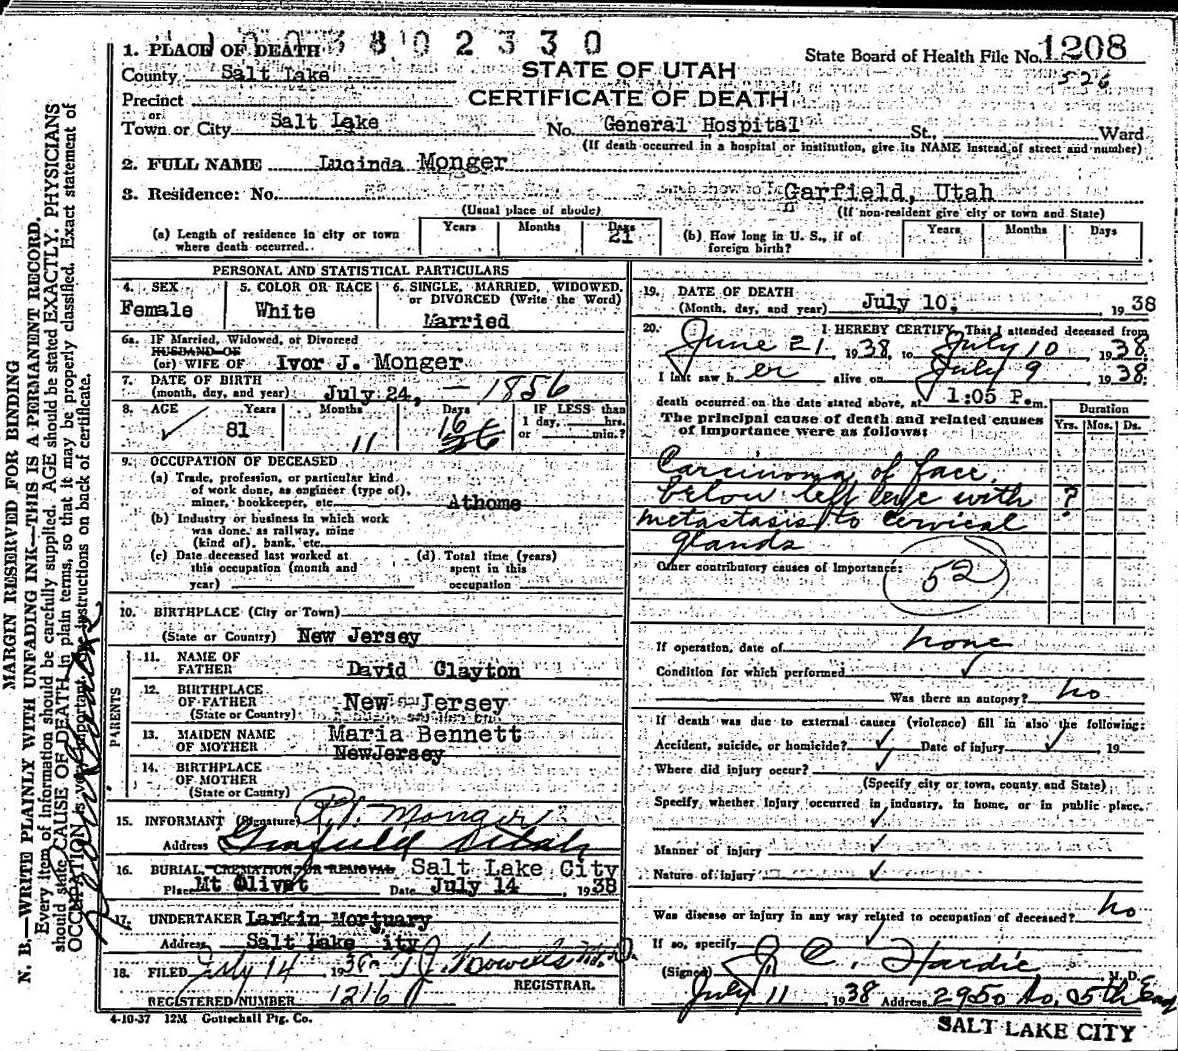 1 0 0 3 8 0 2 3 3 0
State Board of Health File No. 1208
1. PLACE OF DEATH
County Salt Lake
STATE OF UTAH
CERTIFICATE OF DEATH
Precinct
or
Town or City Salt Lake No. General Hospital St., Ward
(If death occurred in a hospital or institution, give its NAME instead of street and number)
2. FULL NAME Lucinda Monger
3. Residence: No. Garfield, Utah
(Usual place of abode) (If non-resident give city or town and State)
(a) Length of residence in city or town where death occurred. Years Months Days 21
(b) How long in U. S., if of foreign birth? Years Months Days
PERSONAL AND STATISTICAL PARTICULARS
4. SEX Female
5. COLOR OR RACE White
6. SINGLE, MARRIED, WIDOWED, or DIVORCED (Write the Word) Married
6a. IF Married, Widowed, or Divorced
HUSBAND OF
(or) WIFE OF Ivor J. Monger
7. DATE OF BIRTH
(month, day, and year) July 24, - 1856
8. AGE Years 81 Months 11 Days 16 IF LESS than 1 day, hrs. or min.?
9. OCCUPATION OF DECEASED
(a) Trade, profession, or particular kind
of work done, as engineer (type of),
miner, bookkeeper, etc. Athome
(b) Industry or business in which work
was done, as railway, mine
(kind of), bank, etc.
(c) Date deceased last worked at
this occupation (month and
year)
(d) Total time (years)
spent in this
occupation
10. BIRTHPLACE (City or Town)
(State or Country) New Jersey
PARENTS
11. NAME OF
FATHER David Clayton
12. BIRTHPLACE
OF FATHER New Jersey
(State or Country)
13. MAIDEN NAME
OF MOTHER Maria Bennett
NewJersey
14. BIRTHPLACE
OF MOTHER
(State or County)
15. INFORMANT (Signature) Monger
Address Garfield Utah
16. BURIAL, CREMATION, OR REMOVAL Salt Lake City
Place Mt Olivet Date July 14, 1938
17. UNDERTAKER Larkin Mortuary
Address Salt Lake ity
18. FILED July 14 1938 M.D.
REGISTRAR.
REGISTERED NUMBER 1216
4-10-37 12M Gottschall Ptg. Co.
19. DATE OF DEATH
(Month, day, and year) July 10, 1938
20. I HEREBY CERTIFY, That I attended deceased from
June 21, 1938, to July 10 1938.
I last saw her alive on July 9, 1938;
death occurred on the date stated above, at 1:05 P.m.
The principal cause of death and related causes
of importance were as follows:
Duration
Yrs. Mos. Ds.
Carcinoma of face
below left eye with ?
metastasis to cervical
glands
Other contributory causes of importance:
52
If operation, date of none
Condition for which performed
Was there an autopsy? no
If death was due to external causes (violence) fill in also the following:
Accident, suicide, or homicide? Date of injury 19
Where did injury occur?
(Specify city or town, county and State)
Specify whether injury occurred in industry, in home, or in public place.
Manner of injury
Nature of injury
Was disease or injury in any way related to occupation of deceased? no
If so, specify
(Signed) J. C. Hardie, M. D.
July 11, 1938 Address 2950 So. 5th East
SALT LAKE CITY
MARGIN RESERVED FOR BINDING
N. B.—WRITE PLAINLY WITH UNFADING INK—THIS IS A PERMANENT RECORD.
Every item of information should be carefully supplied. AGE should be stated EXACTLY. PHYSICIANS
should state CAUSE OF DEATH in plain terms, so that it may be properly classified. Exact statement of
OCCUPATION is very important. See instructions on back of certificate.